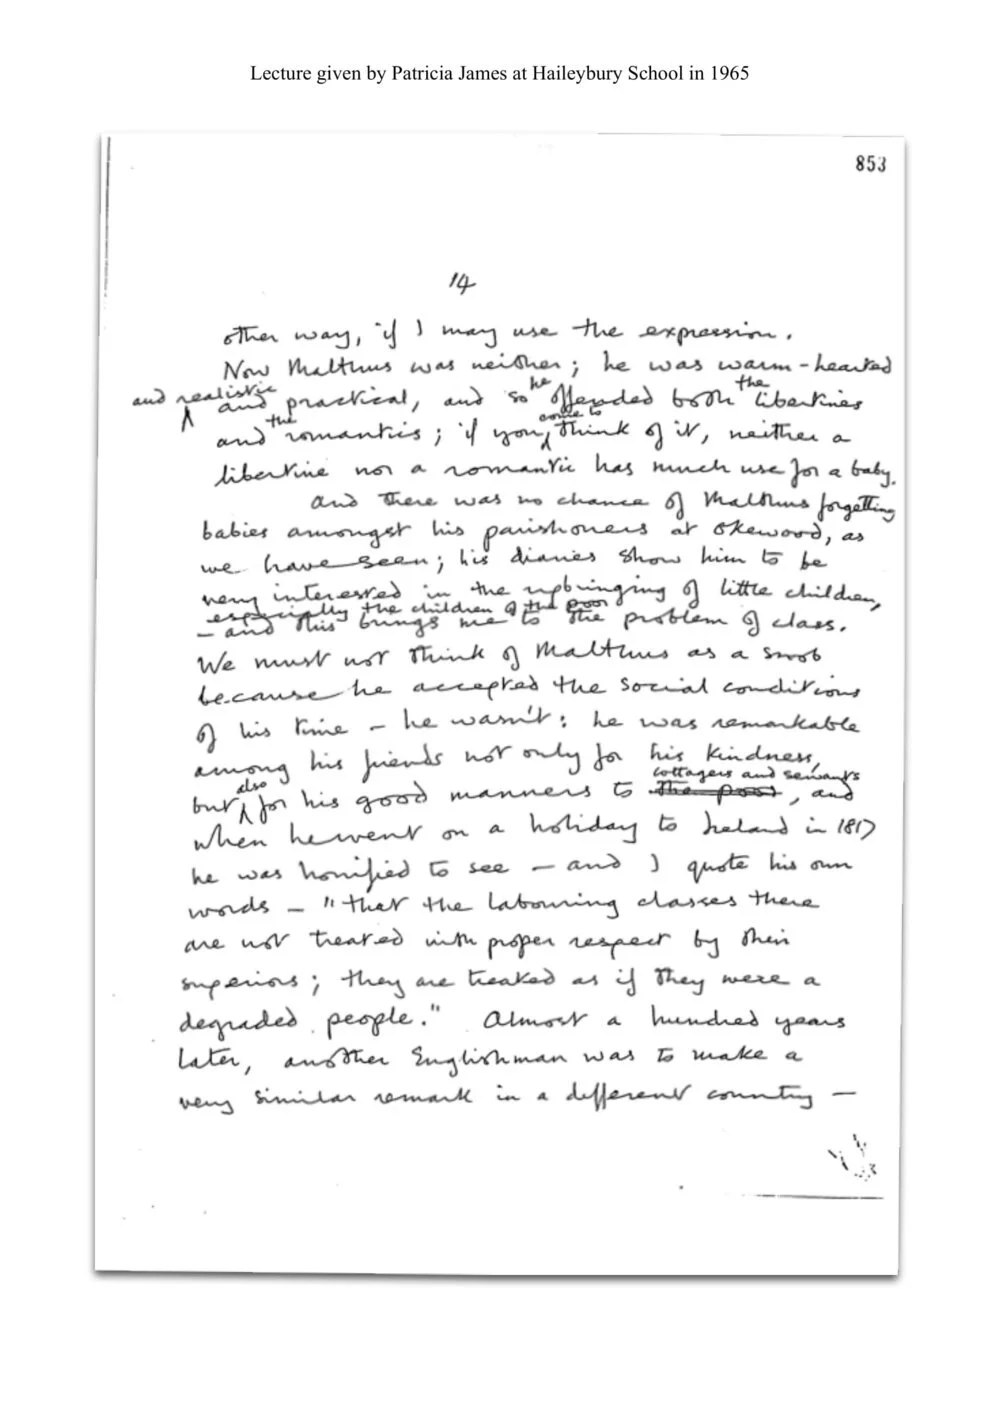 Lecture given by Patricia James at Haileybury School in 1965
853
14
other way, if I may use the expression.
Now Malthus was neither; he was warm-hearted
and realistic and practical, and so he offended both the libertines
and the romantics; if you come to think of it, neither a
libertine nor a romantic has much use for a baby.
And there was no chance of Malthus forgetting
babies amongst his parishoners at Okewood, as
we have seen; his diaries show him to be
very interested in the upbringing of little children,
especially the children of the poor
– and this brings me to the problem of class.
We must not think of Malthus as a snob
because he accepted the social conditions
of his time – he wasn't: he was remarkable
among his friends not only for his kindness,
but also for his good manners to the poor cottagers and servants, and
when he went on a holiday to Ireland in 1817
he was horrified to see – and I quote his own
words – "that the labouring classes there
are not treated with proper respect by their
superiors; they are treated as if they were a
degraded people." Almost a hundred years
later, another Englishman was to make a
very similar remark in a different country –